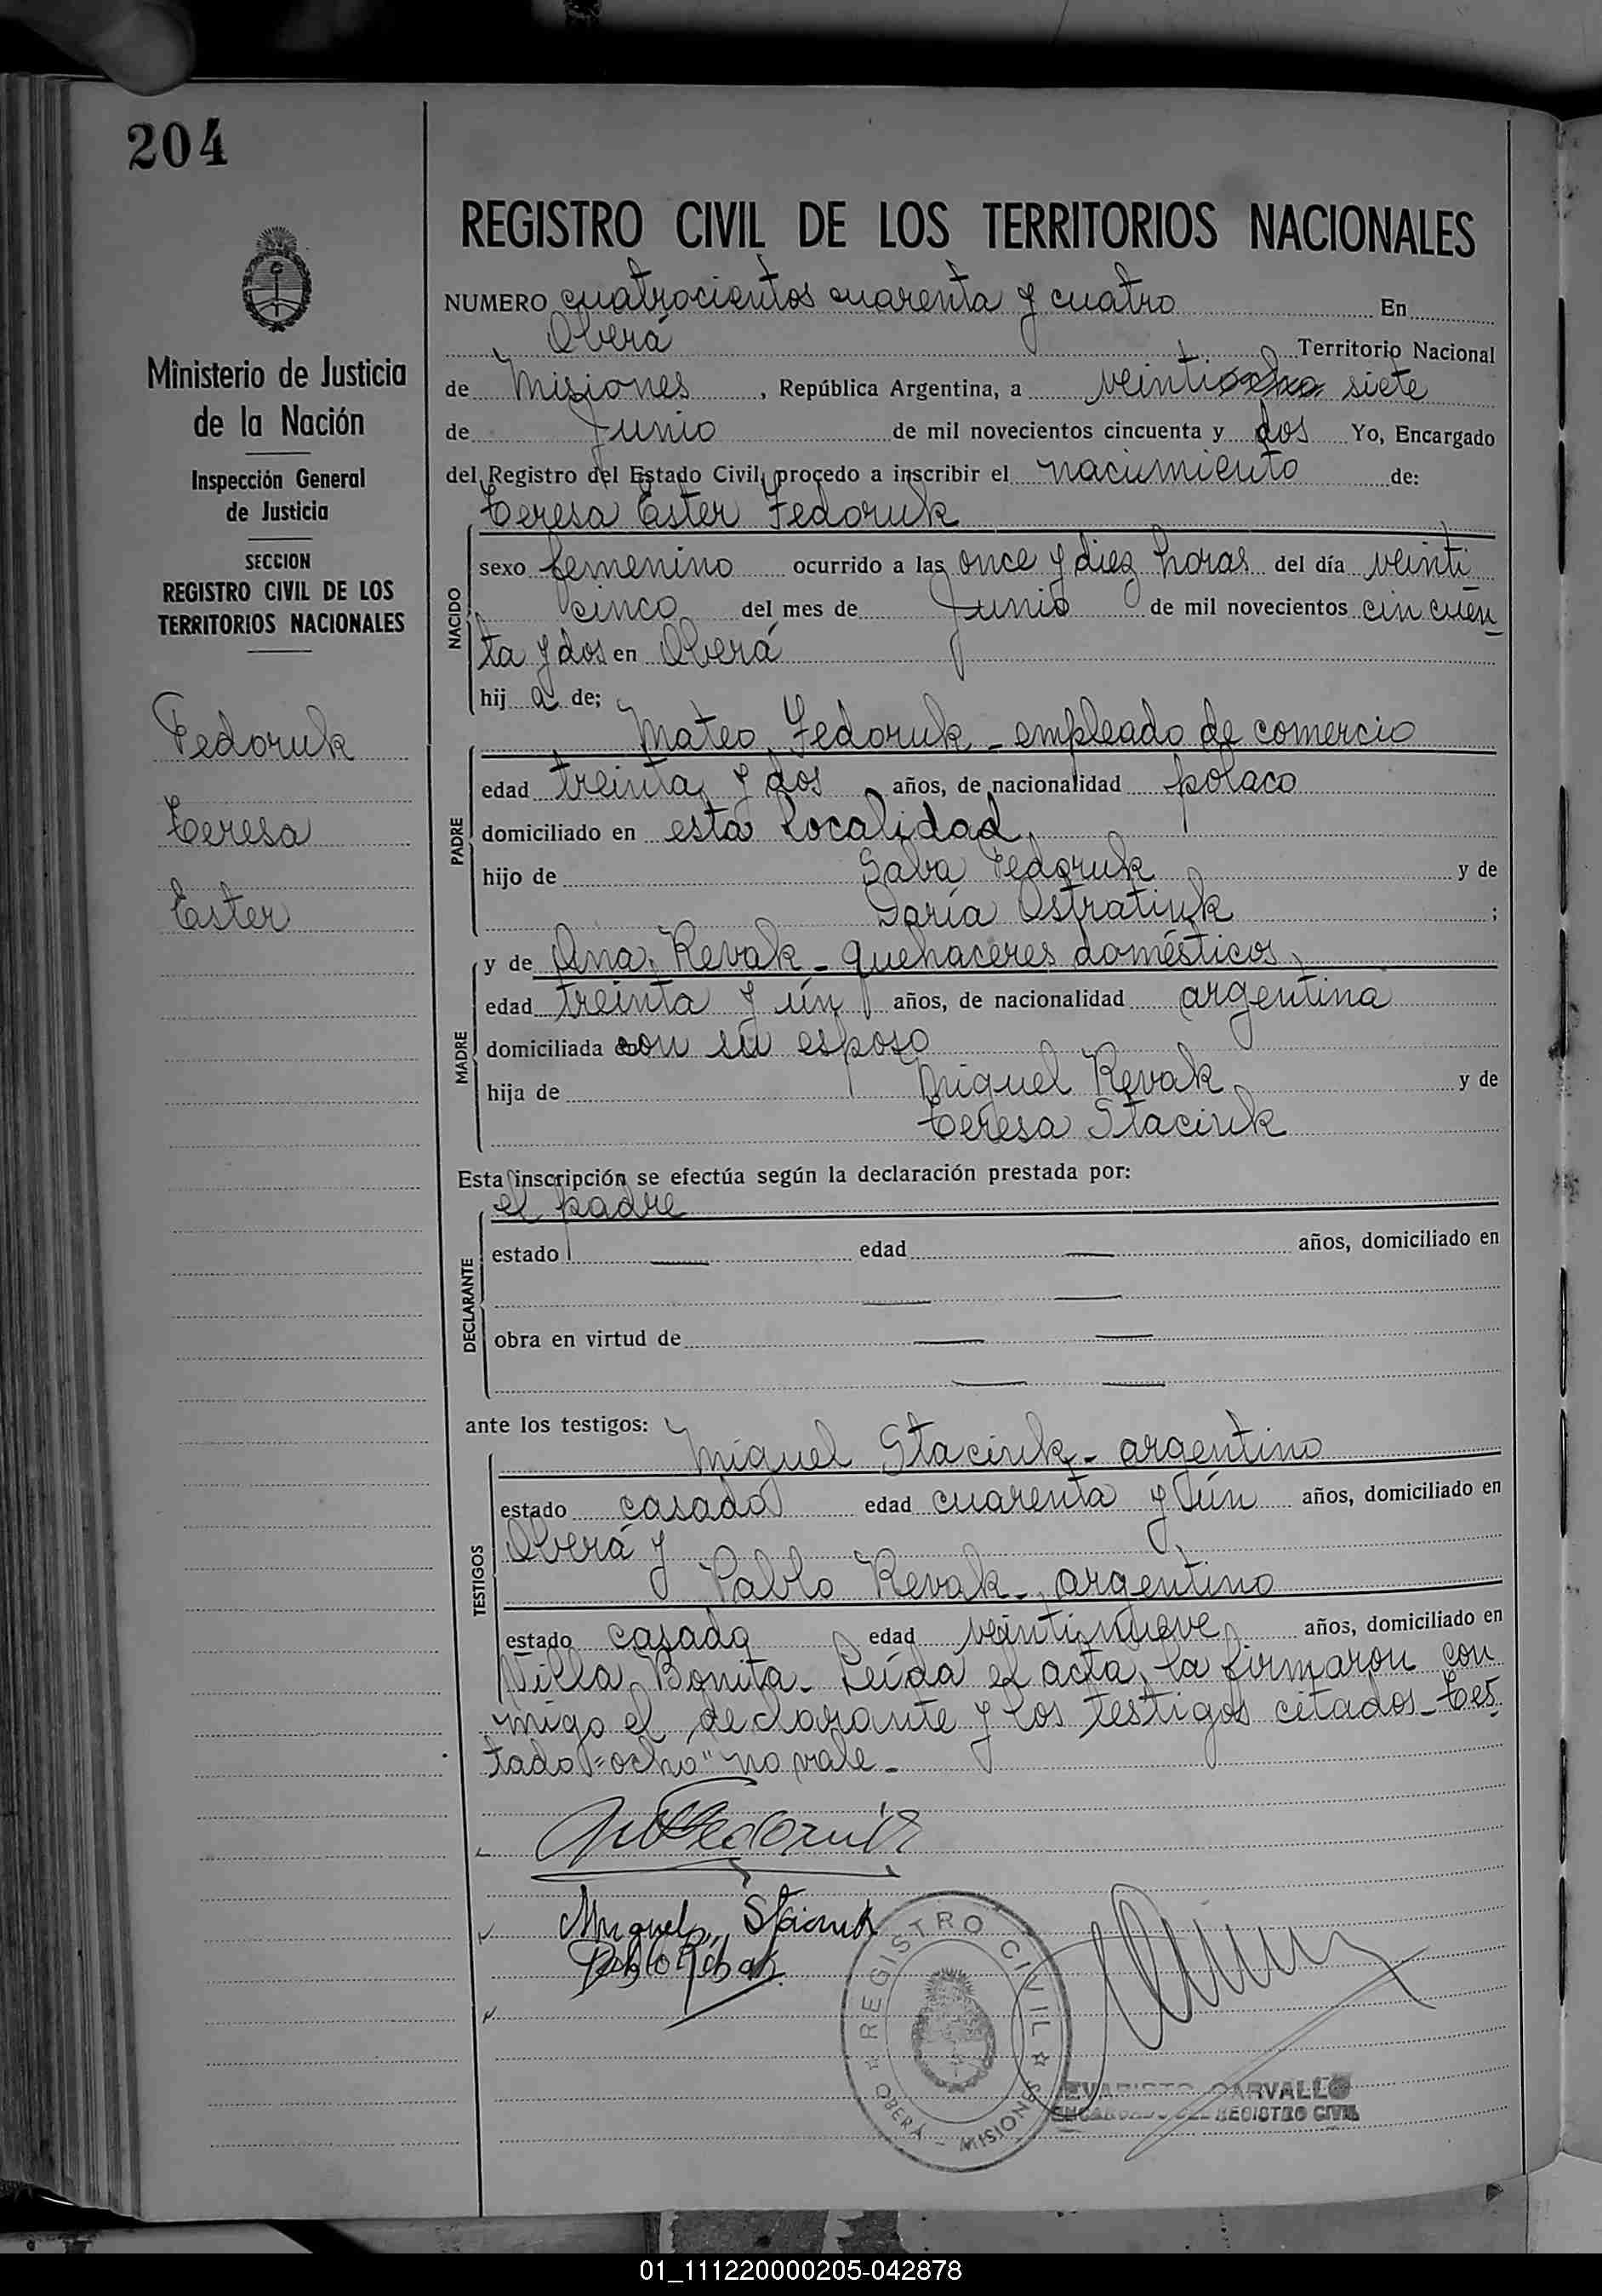 204
Ministerio de Justicia
de la Nación
Inspección General
de Justicia
SECCION
REGISTRO CIVIL DE LOS
TERRITORIOS NACIONALES
Fedoruk
Teresa
Ester
REGISTRO CIVIL DE LOS TERRITORIOS NACIONALES
NUMERO cuatrocientos cuarenta y cuatro En
Oberá Territorio Nacional
de Misiones, República Argentina, a veintiocho siete
de Junio de mil novecientos cincuenta y dos Yo, Encargado
del Registro del Estado Civil, procedo a inscribir el nacimiento de:
Teresa Ester Fedoruk
NACIDO
sexo femenino ocurrido a las once y diez horas del día veinti
cinco del mes de Junio de mil novecientos cincuen
ta y dos en Oberá
hij a de;
Mateo Fedoruk - empleado de comercio
PADRE
edad treinta y dos años, de nacionalidad polaco
domiciliado en esta localidad,
hijo de Saba Fedoruk y de
Daría Ostratiuk ;
y de Ana Revak - quehaceres domésticos,
MADRE
edad treinta y ún años, de nacionalidad argentina
domiciliada con su esposo
hija de Miguel Revak y de
Teresa Staciuk
Esta inscripción se efectúa según la declaración prestada por:
el padre
DECLARANTE
estado — edad — años, domiciliado en
— —
obra en virtud de — —
— —
ante los testigos:
Miguel Staciuk - argentino
TESTIGOS
estado casado edad cuarenta y ún años, domiciliado en
Oberá y
Pablo Revak - argentino
estado casado edad veintinueve años, domiciliado en
Villa Bonita. Leída el acta, la firmaron con
migo el declarante y los testigos citados - Tes
tado "ocho" no vale -
Fedoruk
Miguel Staciuk
Pablo Rebak
REGISTRO CIVIL
OBERÁ - MISIONES
EVARISTO CARVALLO
ENCARGADO DEL REGISTRO CIVIL
01_111220000205-042878